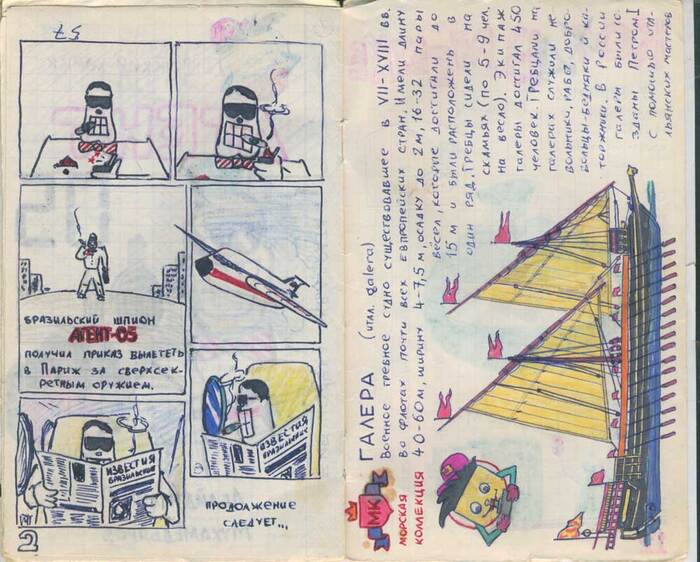 57
БРАЗИЛЬСКИЙ ШПИОН
АГЕНТ-05
ПОЛУЧИЛ ПРИКАЗ ВЫЛЕТЕТЬ
В ПАРИЖ ЗА СВЕРХСЕК-
РЕТНЫМ ОРУЖИЕМ.
ИЗВЕСТИЯ
БРАЗИЛЬСКИЕ
ИЗВЕСТИЯ
БРАЗИЛЬСКИЕ
ПРОДОЛЖЕНИЕ
СЛЕДУЕТ...
МК
МОРСКАЯ
КОЛЛЕКЦИЯ
ГАЛЕРА (итал. galera)
Военное гребное судно существовавшее в VII-XVIII вв.
во флотах почти всех европейских стран. Имели длину
40-60м, ширину 4-7,5 м, осадку до 2м, 16-32 пары
весел, которые достигали до
15 м и были расположены в
один ряд. Гребцы сидели на
скамьях (по 5-9 чел.
на весло). Экипаж
галеры достигал 450
человек. Гребцами на
галерах служили не-
вольники, рабы, добро-
вольцы-бедняки и ка-
торжники. В России
галеры были со-
зданы Петром I
с помощью ита-
льянских мастеров